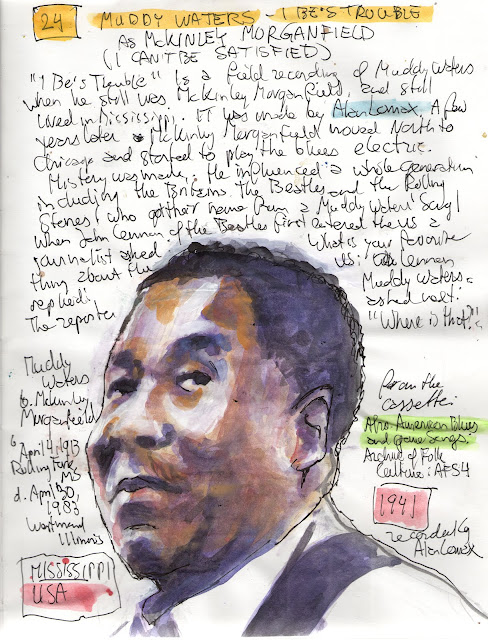 24 MUDDY WATERS - I BE'S TROUBLE
AS McKINLEY MORGANFIELD
(I CAN'T BE SATISFIED)
"I Be's Trouble" is a field recording of Muddy Waters
when he still was McKinley Morganfield, and still
lived in Mississippi. It was made by Alan Lomax. A few
years later McKinley Morganfield moved North to
Chicago and started to play the blues electric.
History was made. He influenced a whole generation
including the Britains The Beatles and the Rolling
Stones (who got their name from a Muddy Waters' song)
When John Lennon of the Beatles first entered the US a
journalist asked: What is your favorite
thing about the US? Lennon
replied: Muddy Waters.
The reporter asked
"Where is that?"
Muddy
Waters
b. McKinley
Morganfield
April 4, 1913
Rolling Fork
MS
d. April 30,
1983
Westmond
Illinois
MISSISSIPPI
USA
From the
cassette:
Afro-American Blues
and Game Songs.
Archive of Folk
Culture: AFS L4
1941
recorded by
Alan Lomax